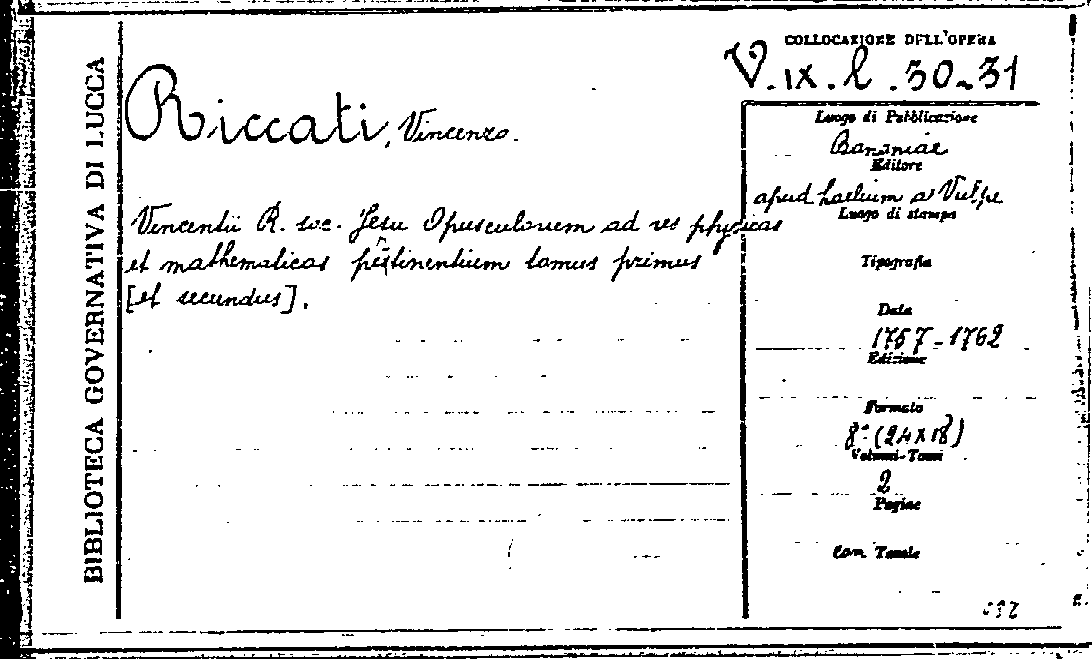 BIBLIOTECA GOVERNATIVA DI LUCCA
COLLOCAZIONE DELL'OPERA
V. IX. l. 30-31
Riccati, Vincenzo.
Vincentii R. soc. Jesu Opusculorum ad res physicas
et mathematicas pertinentium tomus primus
[et secundus].
Luogo di Pubblicazione
Bononiae
Editore
apud Laelium a Vulpe
Luogo di stampa
Tipografia
Data
1757-1762
Edizione
Formato
8° (24x18)
Volumi-Tomi
2
Pagine
con Tavole